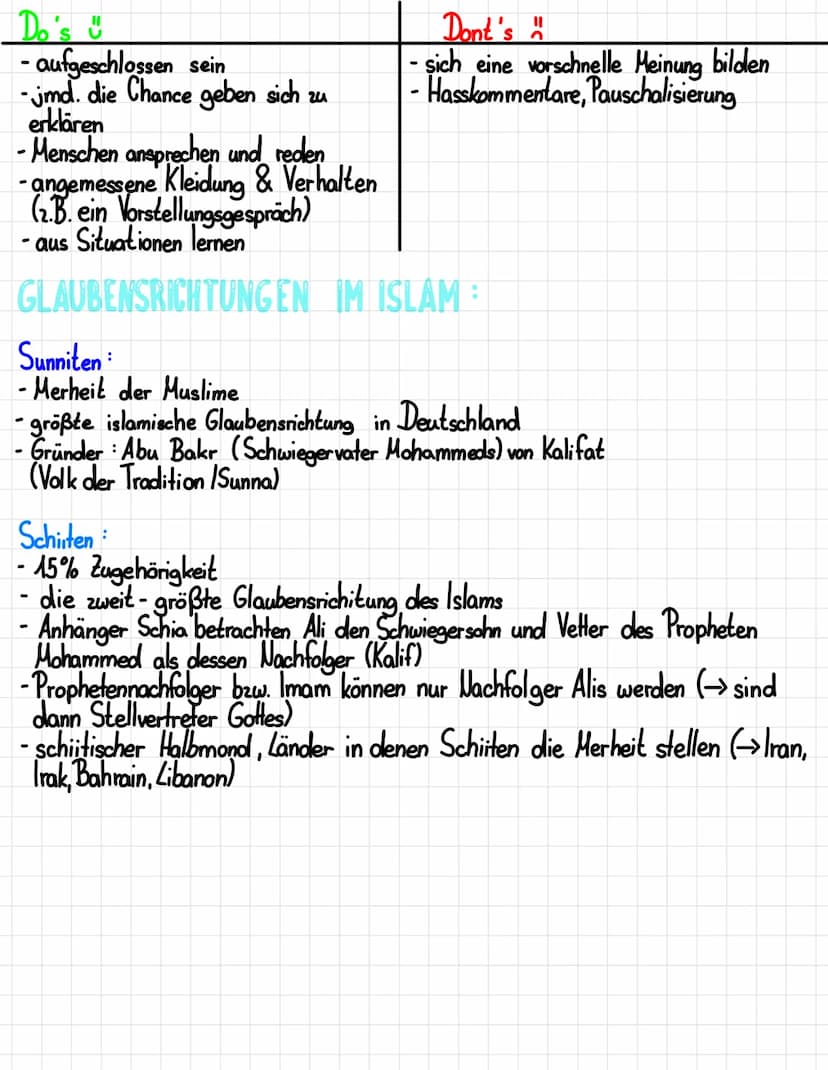 Do's
- aufgeschlossen sein
- jmd. die Chance geben sich zu
erklären
- Menschen ansprechen und reden
- angemessene Kleidung & Verhalten
(z.B. ein Vorstellungsgespräch)
- aus Situationen lernen
Dont's
- sich eine vorschnelle Meinung bilden
- Hasskommentare, Pauschalisierung
GLAUBENSRICHTUNGEN IM ISLAM:
Sunniten:
- Merheit der Muslime
- größte islamische Glaubensrichtung in Deutschland
- Gründer: Abu Bakr (Schwiegervater Mohammeds) von Kalifat
(Volk der Tradition /Sunna)
Schiiten:
- 15% Zugehörigkeit
- die zweit-größte Glaubensrichitung des Islams
- Anhänger Schia betrachten Ali den Schwiegersohn und Vetter des Propheten
Mohammed als dessen Nachfolger (Kalif)
- Prophetennachfolger bzw. Imam können nur Nachfolger Alis werden (→ sind
dann Stellvertreter Gottes)
- schiitischer Halbmond, Länder in denen Schiiten die Merheit stellen (→ Iran,
Irak, Bahrain, Libanon)